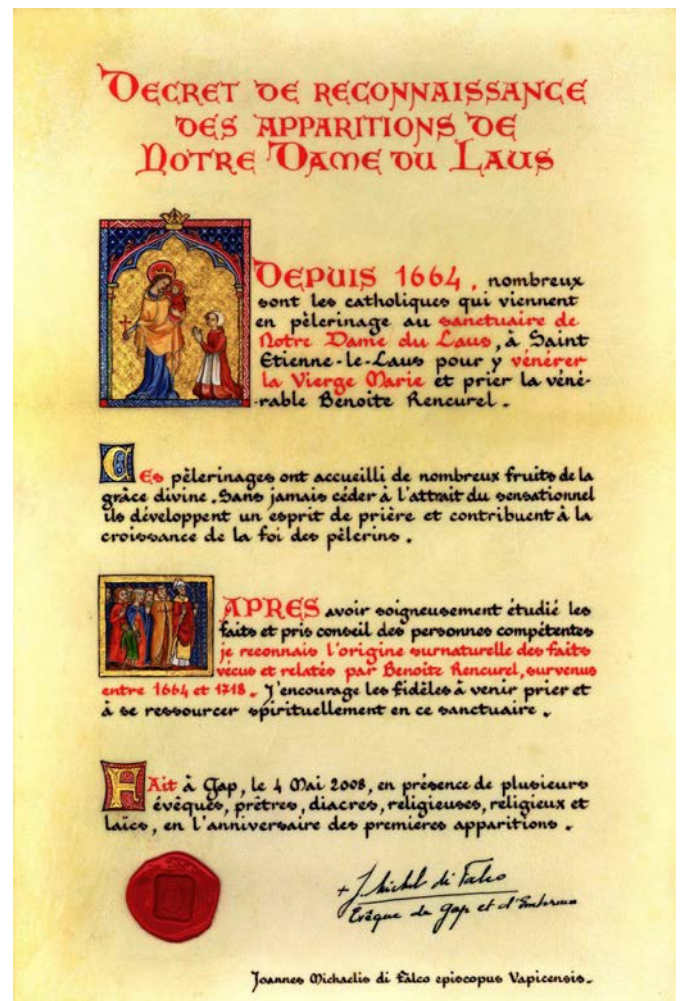 DECRET DE RECONNAISSANCE
DES APPARITIONS DE
NOTRE DAME DU LAUS
DEPUIS 1664, nombreux
sont les catholiques qui viennent
en pèlerinage au sanctuaire de
Notre Dame du Laus, à Saint
Etienne-le-Laus pour y vénérer
la Vierge Marie et prier la véné-
rable Benoîte Rencurel.
Ces pèlerinages ont accueilli de nombreux fruits de la
grâce divine. Sans jamais céder à l'attrait du sensationnel
ils développent un esprit de prière et contribuent à la
croissance de la foi des pèlerins.
APRES avoir soigneusement étudié les
faits et pris conseil des personnes compétentes
je reconnais l'origine surnaturelle des faits
vécus et relatés par Benoîte Rencurel, survenus
entre 1664 et 1718. J'encourage les fidèles à venir prier et
à se ressourcer spirituellement en ce sanctuaire.
Fait à Gap, le 4 Mai 2008, en présence de plusieurs
évêques, prêtres, diacres, religieuses, religieux et
laïcs, en l'anniversaire des premières apparitions.
+ J Michel di Falco
Evêque de Gap et d'Embrun
Joannes Michaelis di Falco episcopus Vapicensis.